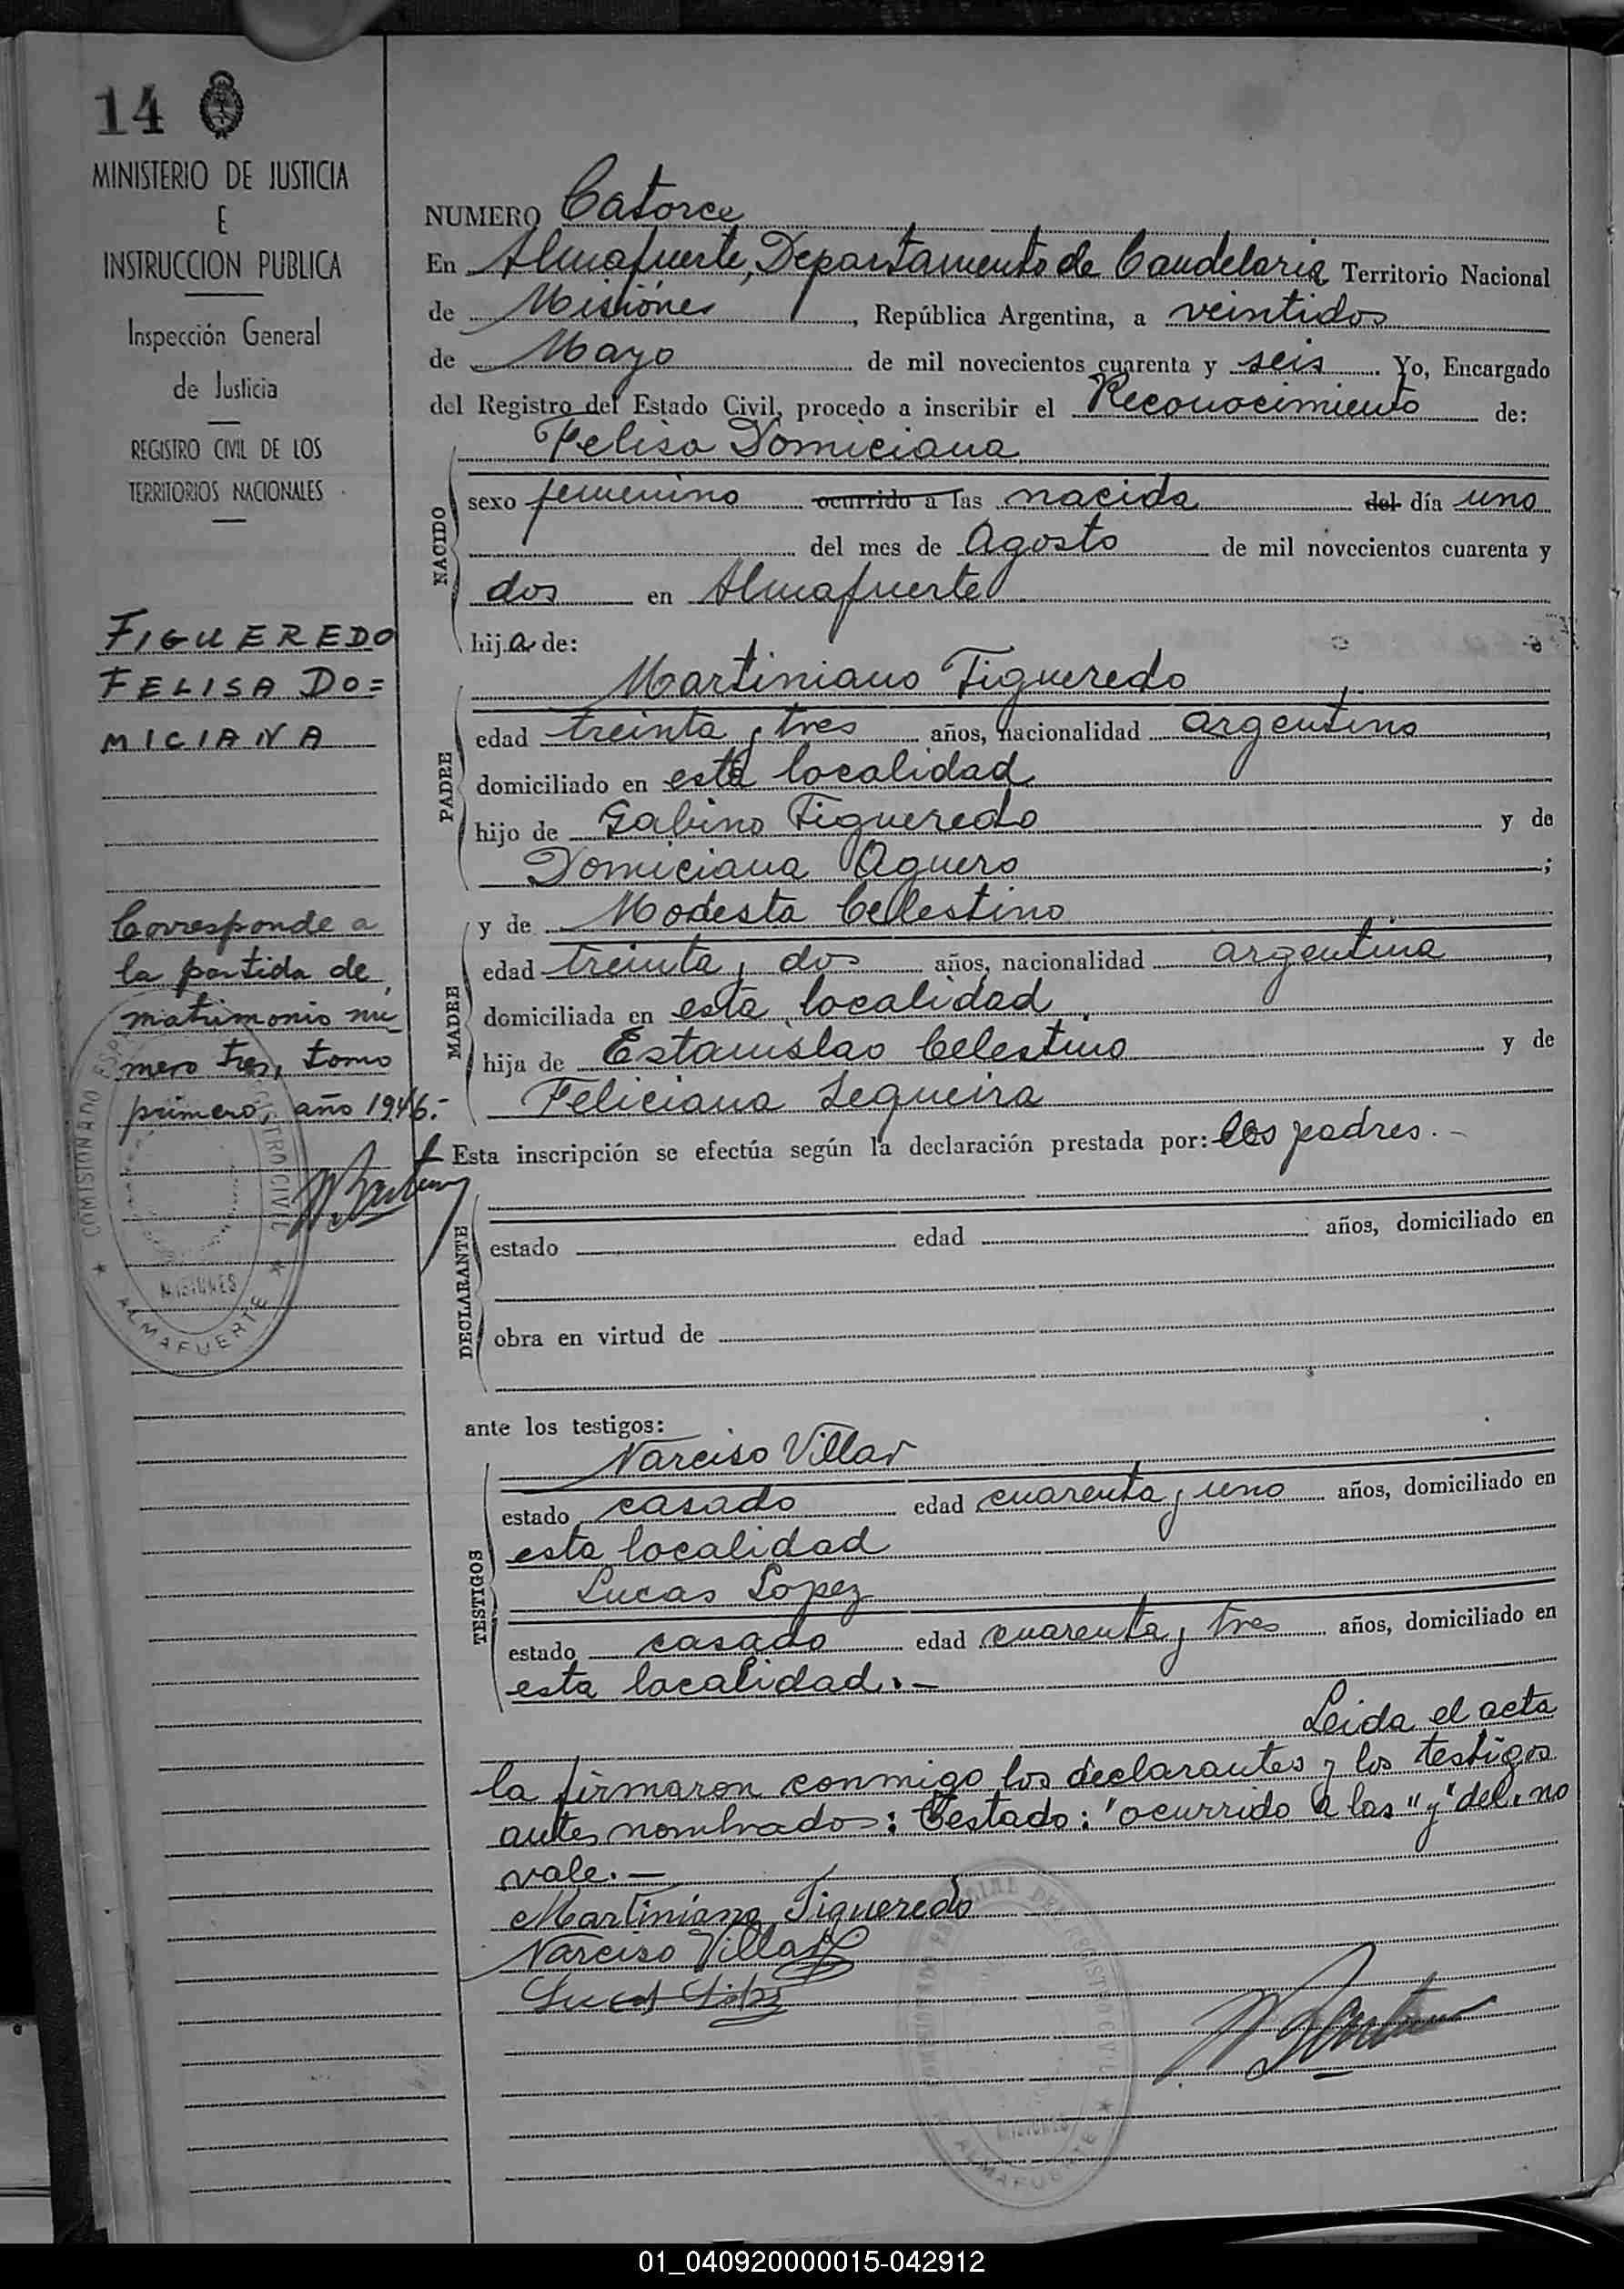 14
MINISTERIO DE JUSTICIA
E
INSTRUCCION PUBLICA
Inspección General
de Justicia
REGISTRO CIVIL DE LOS
TERRITORIOS NACIONALES
FIGUEREDO
FELISA DO=
MICIANA
Corresponde a
la partida de
matrimonio nu-
mero tres, tomo
primero, año 1946.-
COMISIONADO ESP
TRO CIVIL
MISIONES
ALMAFUERTE
NUMERO Catorce
En Almafuerte, Departamento de Candelaria Territorio Nacional
de Misiones, República Argentina, a veintidos
de Mayo de mil novecientos cuarenta y seis. Yo, Encargado
del Registro del Estado Civil, procedo a inscribir el Reconocimiento de:
NACIDO
Felisa Domiciana
sexo femenino ocurrido a las nacida del día uno
del mes de Agosto de mil novecientos cuarenta y
dos en Almafuerte
hija de:
PADRE
Martiniano Figueredo
edad treinta y tres años, nacionalidad argentino,
domiciliado en esta localidad
hijo de Gabino Figueredo y de
Domiciana Aguero;
MADRE
y de Modesta Celestino
edad treinta y dos años, nacionalidad argentina,
domiciliada en esta localidad
hija de Estanislao Celestino y de
Feliciana Sequeira
Esta inscripción se efectúa según la declaración prestada por: los padres.-
DECLARANTE
estado edad años, domiciliado en
obra en virtud de
ante los testigos:
TESTIGOS
Narciso Villar
estado casado edad cuarenta y uno años, domiciliado en
esta localidad
Lucas Lopez
estado casado edad cuarenta y tres años, domiciliado en
esta localidad.-
Leida el acta
la firmaron conmigo los declarantes y los testigos
antes nombrados: Testado: "ocurrido a las" y "del" no
vale.-
Martiniano Figueredo
Narciso Villar
Lucas López
DEL REGISTRO CIVIL
MISIONES
ALMAFUERTE
01_040920000015-042912